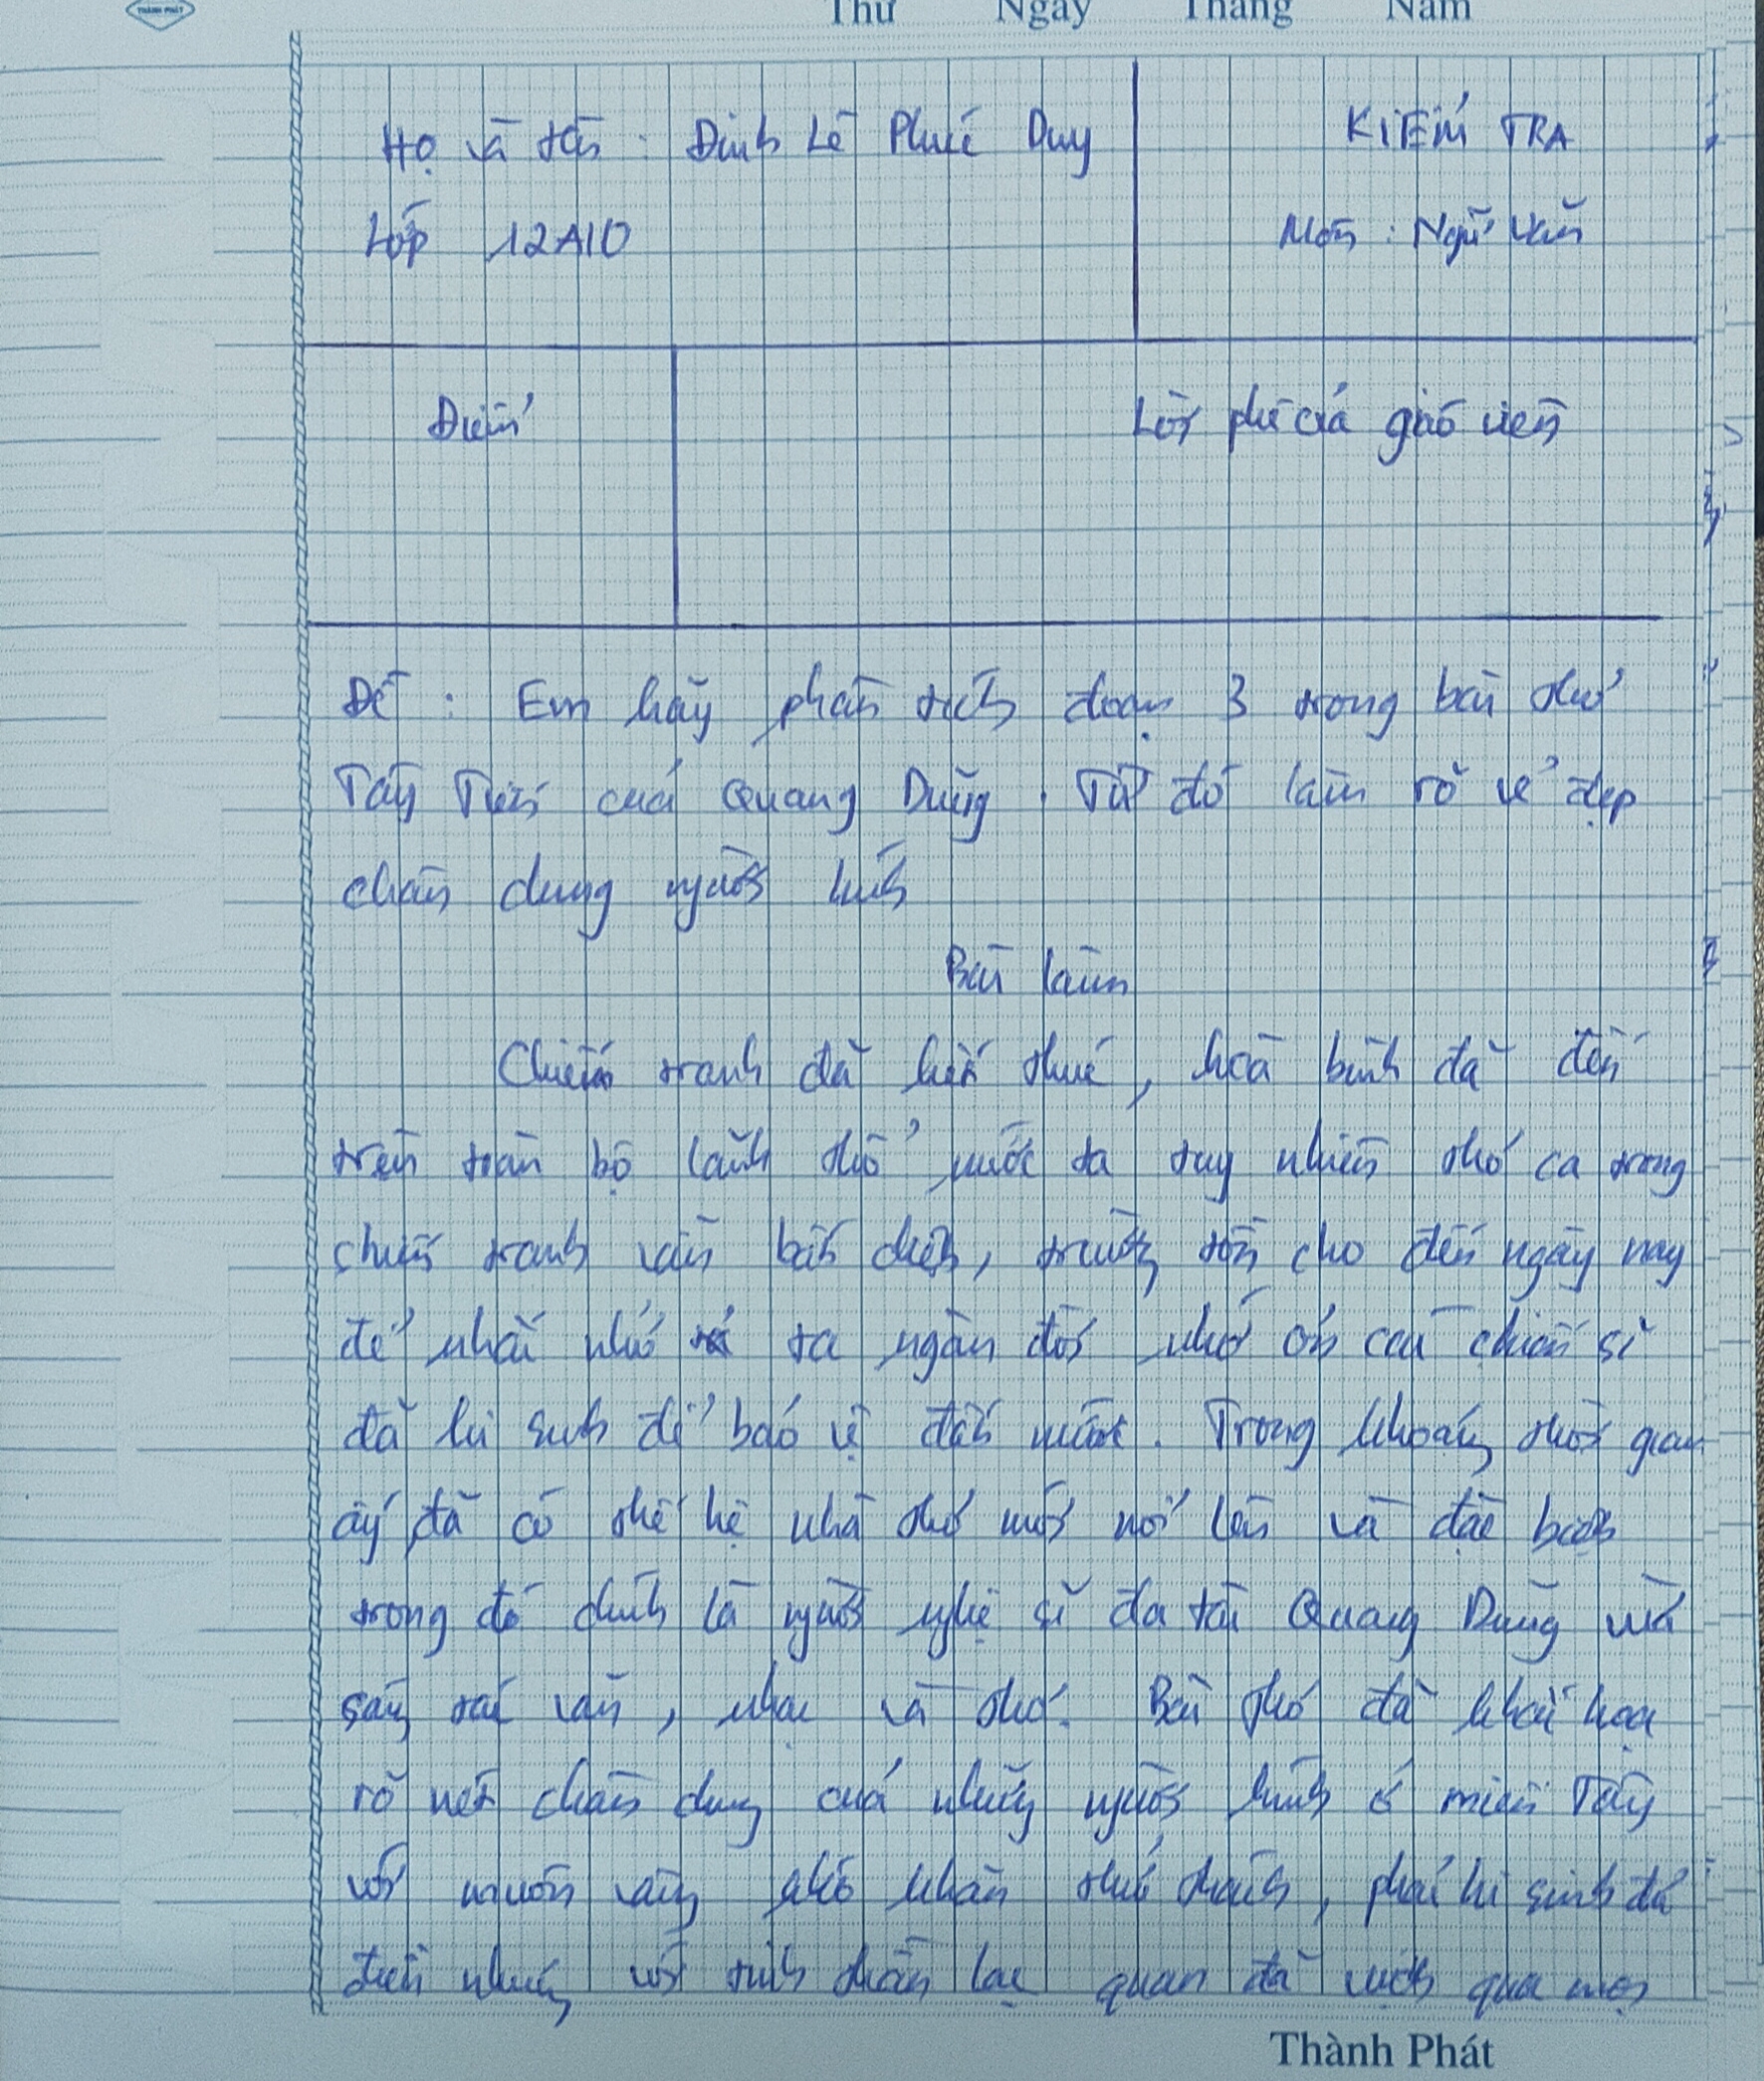 THÀNH PHÁT
Thứ Ngày Tháng Năm
Họ và tên : Đinh Lê Phúc Duy
KIỂM TRA
Lớp 12A10
Môn : Ngữ Văn
Điểm
Lời phê của giáo viên
Đề : Em hãy phân tích đoạn 3 trong bài thơ
Tây Tiến của Quang Dũng . Từ đó làm rõ vẻ đẹp
chân dung người lính
Bài làm
Chiến tranh đã kết thúc, hoà bình đã đến
trên toàn bộ lãnh thổ nước ta tuy nhiên thơ ca trong
chiến tranh vẫn bất diệt, trường tồn cho đến ngày nay
để nhắc nhở ta ngàn đời nhớ ơn các chiến sĩ
đã hi sinh để bảo vệ đất nước. Trong khoảng thời gian
ấy đã có thế hệ nhà thơ mới nổi lên và đặc biệt
trong đó chính là người nghệ sĩ đa tài Quang Dũng mà
sáng tác văn, nhạc và thơ. Bài thơ đã khắc hoạ
rõ nét chân dung của những người lính ở miền Tây
với muôn vàng khó khăn thử thách, phải hi sinh đá
điền nhưng với tinh thần lạc quan đã vượt qua mọi
Thành Phát